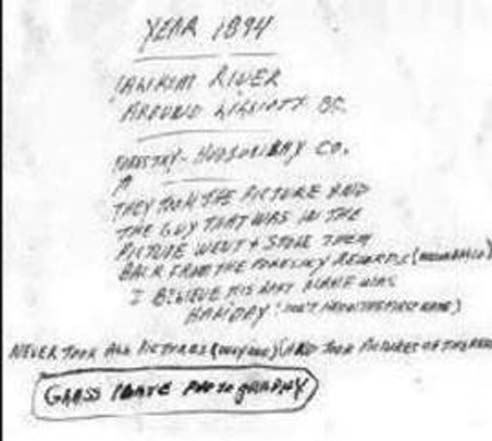 YEAR 1894
YALIKIM RIVER
AROUND LILLIOTT BC.
FORESTRY - HUDSONBAY CO.
THEY TOOK THE PICTURE AND
THE GUY THAT WAS IN THE
PICTURE WENT & STOLE THEM
BACK FROM THE FORESTRY RECORDS
I BELIEVE HIS LAST NAME WAS
HALIDAY (DON'T KNOW THE FIRST NAME)
NEVER TOOK ALL PICTURES (ONLY ONE) AND TOOK PICTURES OF
GLASS PLATE PHOTOGRAPHY